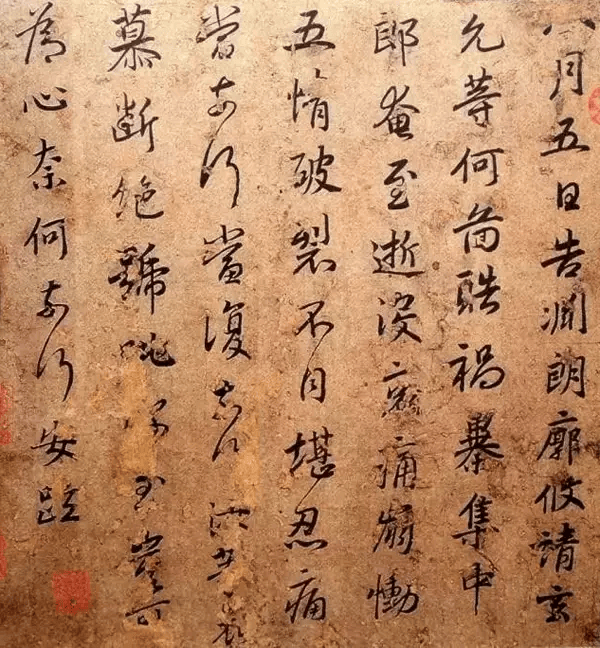 八月五日告淵朗廓攸靖玄
允等何啚酷禍暴集中
郎奄至逝没哀痛崩慟
五情破裂不自堪忍痛
當奈何當復奈何汝等哀
慕断絶號咷深至豈可
為心奈何奈何安疏